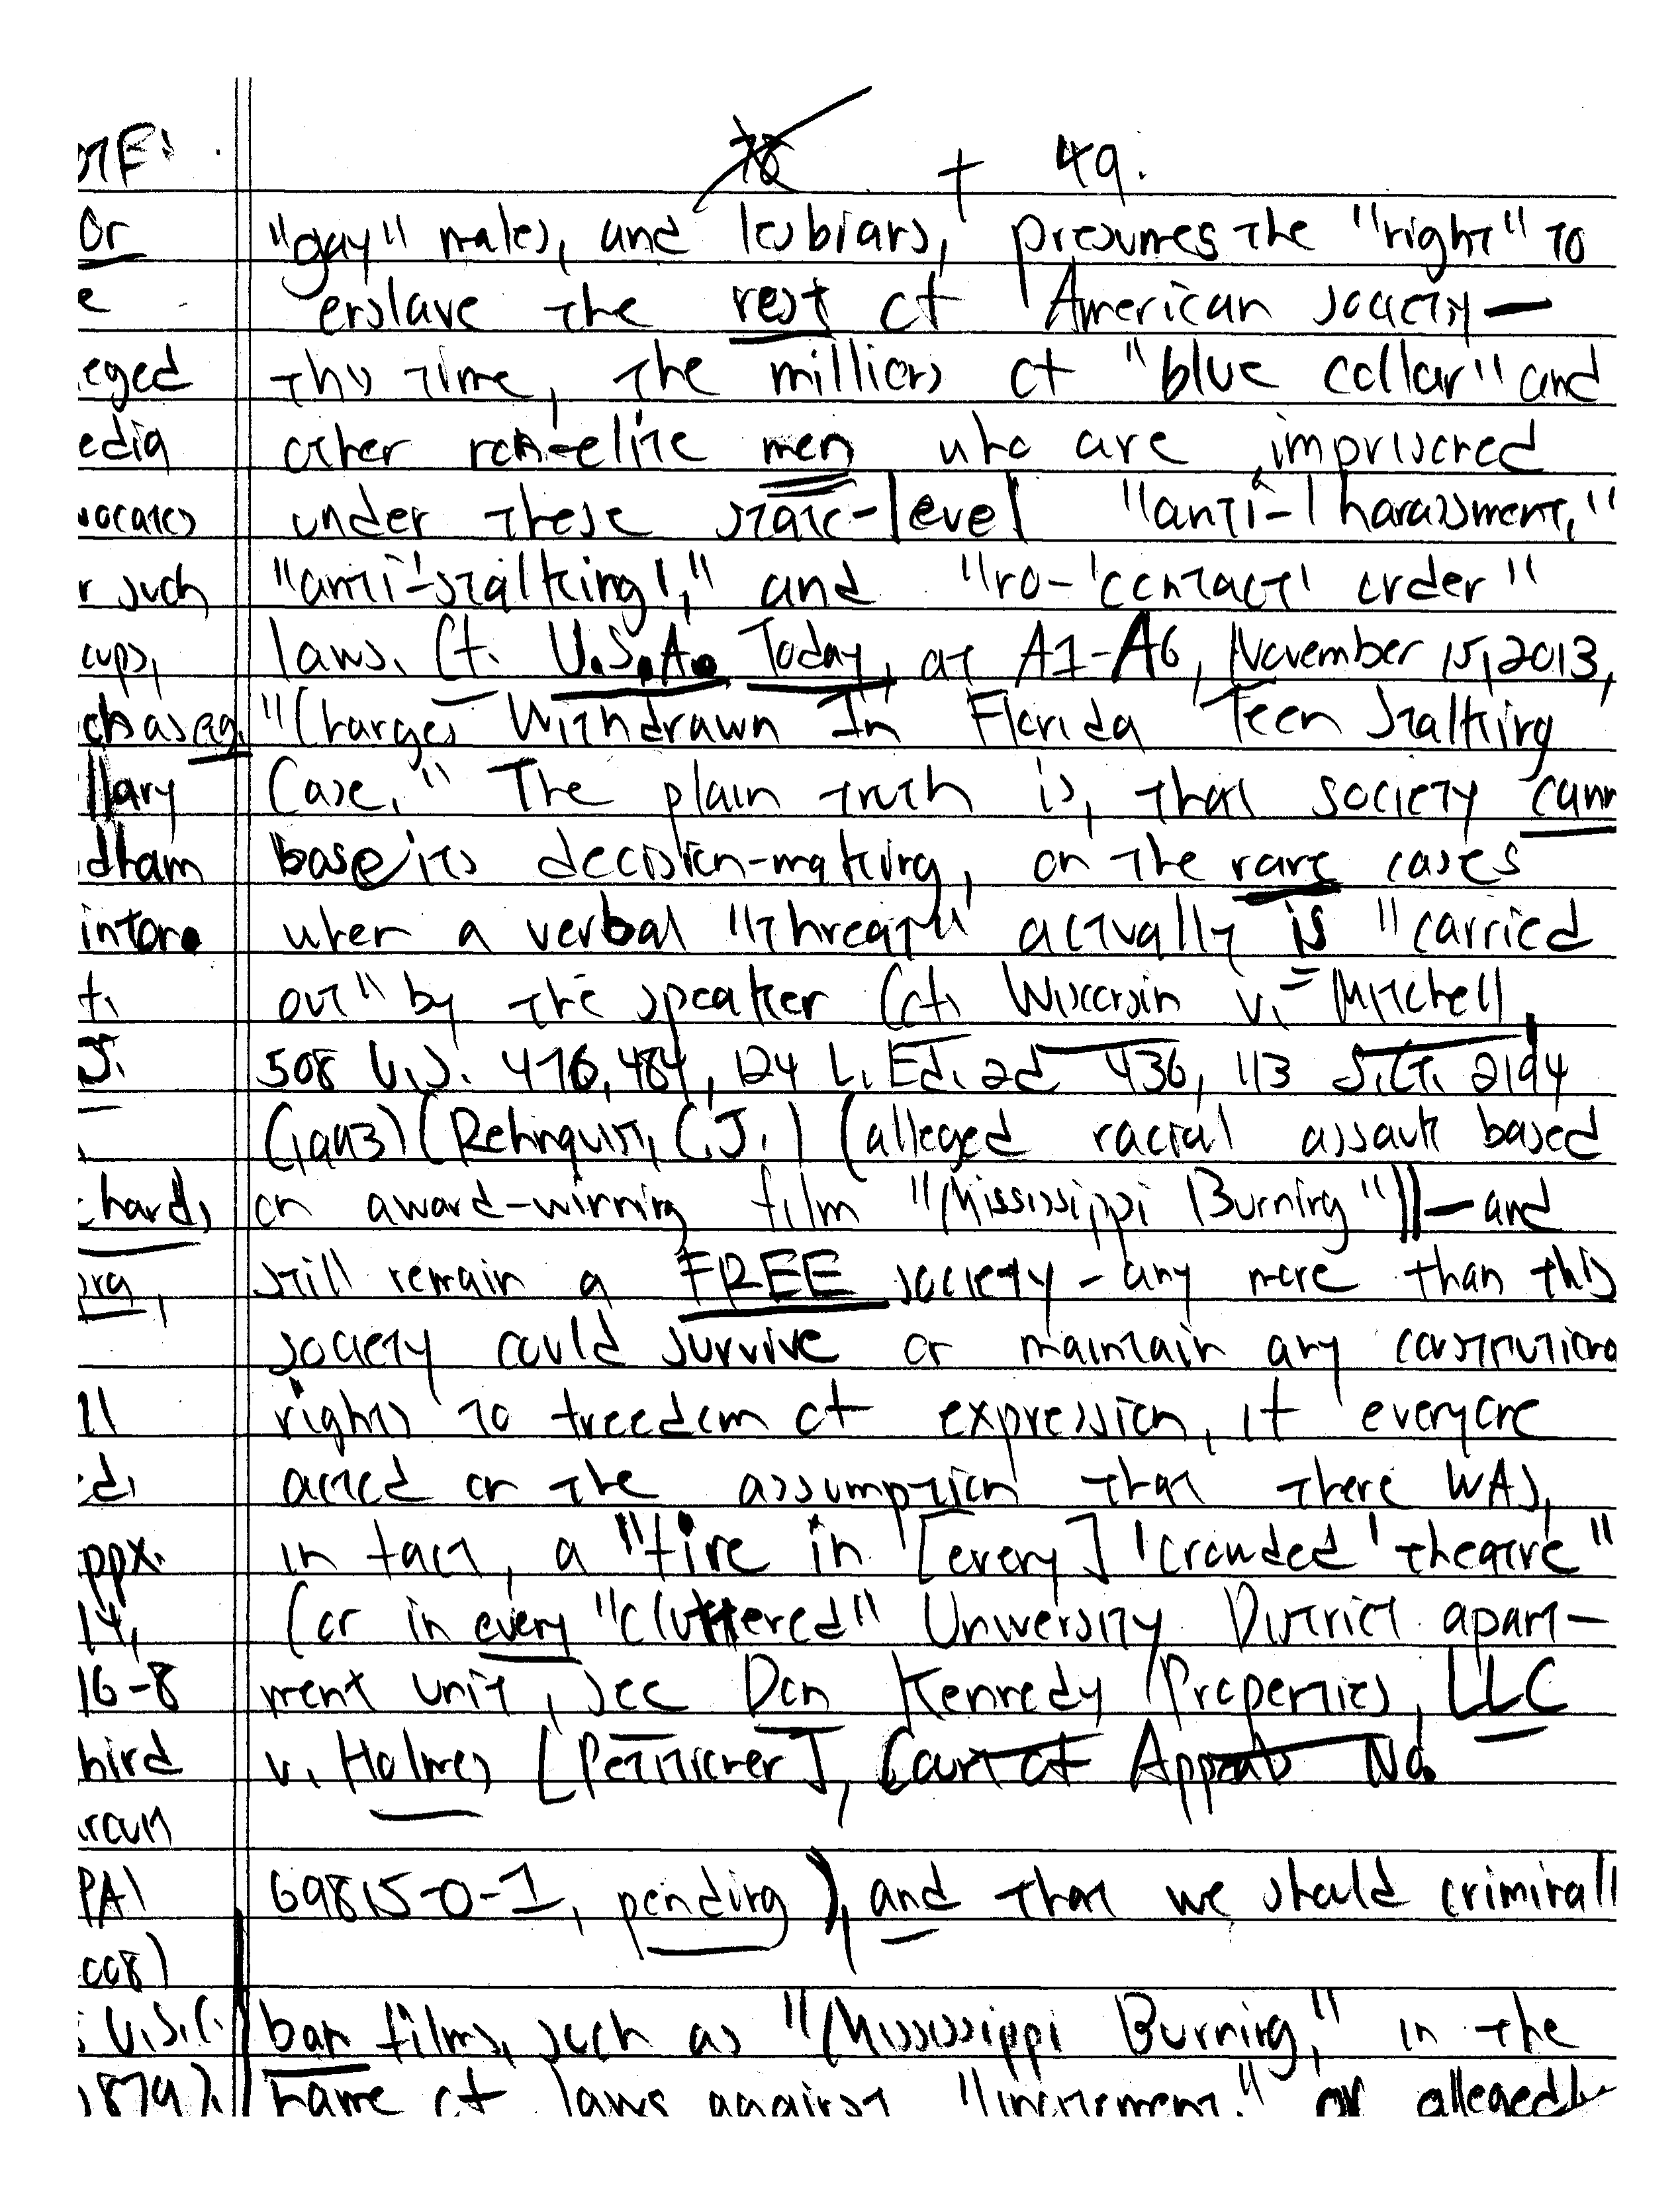 OTE:
78 + 49.
or
"gay" males, and lesbians, presumes the "right" to
e
enslave the rest of American society—
eged
this time, the millions of "blue collar" and
edia
other non-elite men who are imprisoned
vocates
under these state-level "anti-'harassment,'"
r such
"anti-'stalking'," and "no-'contact' order"
ups,
laws. Cf. U.S.A. Today, at A1-A6, November 15, 2013,
chas eg.
"Charges Withdrawn In Florida Teen Stalking
llary
Case." The plain truth is, that society cann
dham
base its decision-making, on the rare cases
inton.
when a verbal "threat" actually is "carried
f.
out" by the speaker (cf. Wisconsin v. Mitchell,
S.
508 U.S. 476, 484, 124 L. Ed. 2d 436, 113 S.Ct. 2194
(1993) (Rehnquist, C.J.) (alleged racial assault based
chard,
on award-winning film "Mississippi Burning"))—and
org,
still remain a FREE society - any more than this
society could survive or maintain any constitutiona
ll
rights to freedom of expression, if everyone
ed.
acted on the assumption that there WAS,
ppx.
in fact, a "fire in [every] 'crowded' theatre"
14,
(or in every "cluttered" University District apart-
16-8
ment unit, see Don Kennedy Properties, LLC
hird
v. Holmes [Petitioner], Court of Appeals No.
rcuit
PA)
69815-0-1, pending), and that we should criminall
008)
U.S.C.
ban films, such as "Mississippi Burning," in the
1879).
name of laws against "incitement," or allegedly